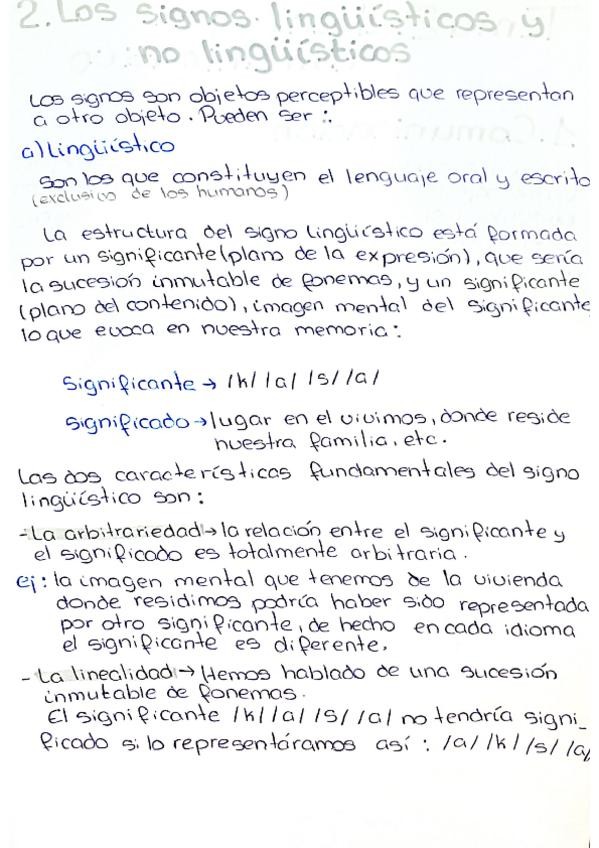 2. Los signos lingüísticos y
no lingüísticos
Los signos son objetos perceptibles que representan
a otro objeto. Pueden ser :.
a) Lingüístico
Son los que constituyen el lenguaje oral y escrito
(exclusivo de los humanos)
La estructura del signo lingüístico está formada
por un significante (plano de la expresión), que sería
la sucesión inmutable de fonemas, y un significante
(plano del contenido), imagen mental del significante
lo que evoca en nuestra memoria:
Significante → /k/ /a/ /s/ /a/
significado → lugar en el vivimos, donde reside
nuestra familia, etc.
Las dos características fundamentales del signo
lingüístico son:
- La arbitrariedad → la relación entre el significante y
el significado es totalmente arbitraria.
ej: la imagen mental que tenemos de la vivienda
donde residimos podría haber sido representada
por otro significante, de hecho en cada idioma
el significante es diferente.
- La linealidad → Hemos hablado de una sucesión
inmutable de fonemas.
El significante /k/ /a/ /s/ /a/ no tendría signi_
ficado si lo representáramos así : /a/ /k/ /s/ /a/